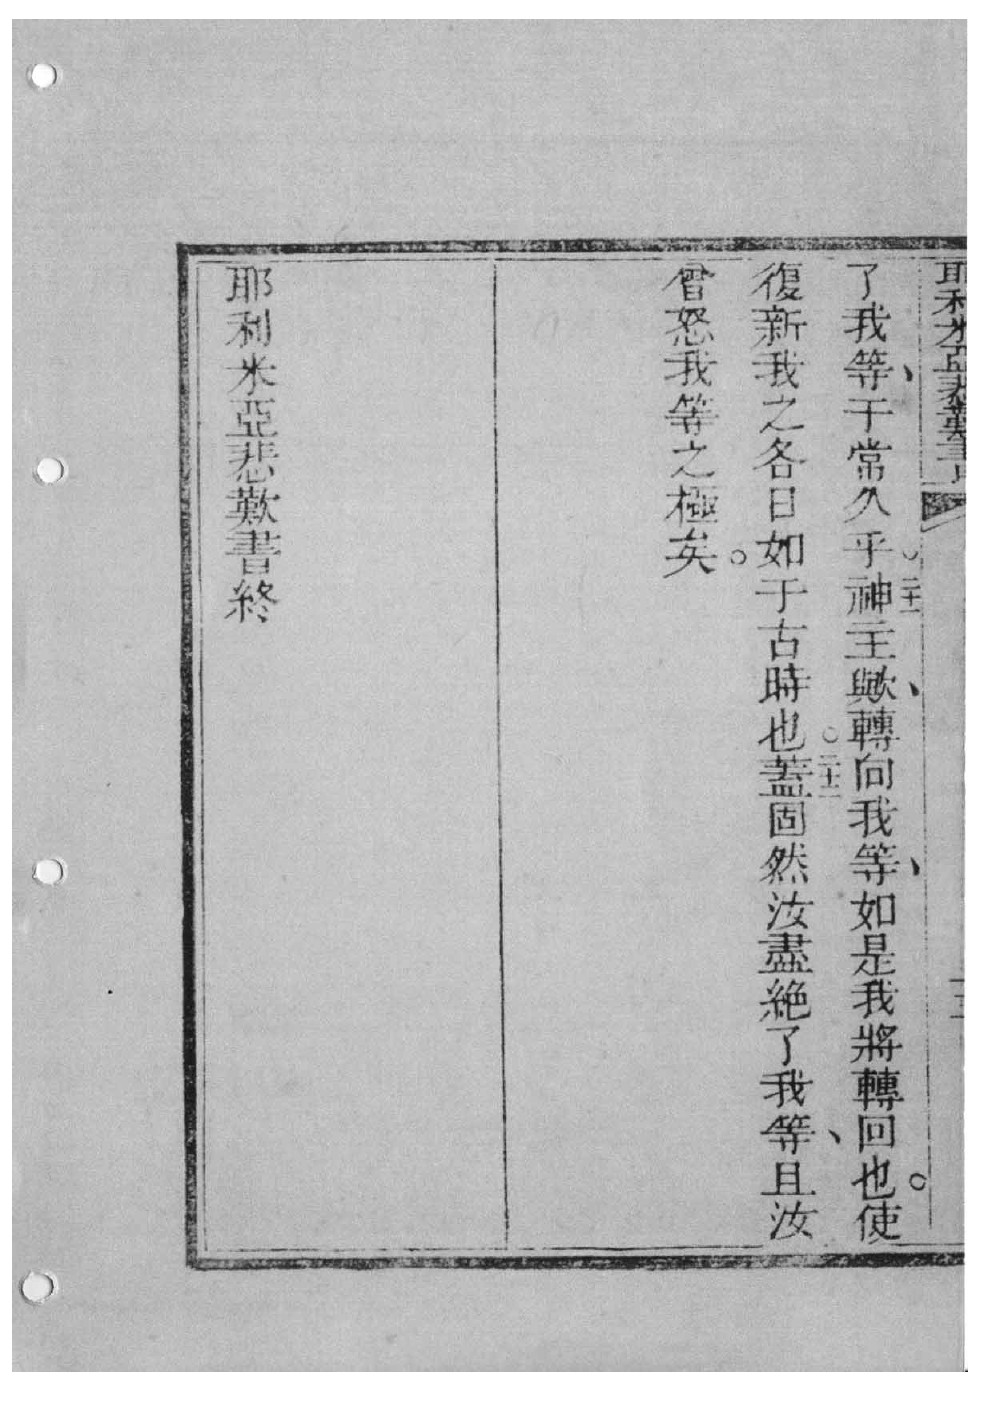 耶利米亞悲歎書
了我等、干常久乎。二十一神主歟、轉向我等、如是我將轉回也。使
復新我之各日如于古時也。二十二蓋固然汝盡絕了我等、且汝
曾怒我等之極矣。
耶利米亞悲歎書終